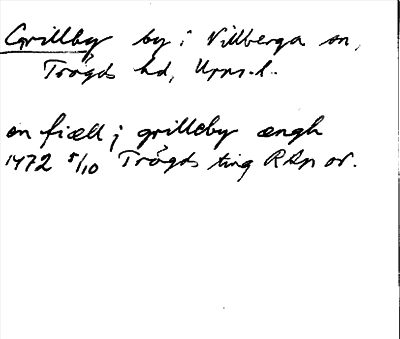 Grillby by i Villberga sn,
Trögds hd, Upps. l.
en fiæll j grilleby ængh
1472 5/10 Trögds ting RAp or.